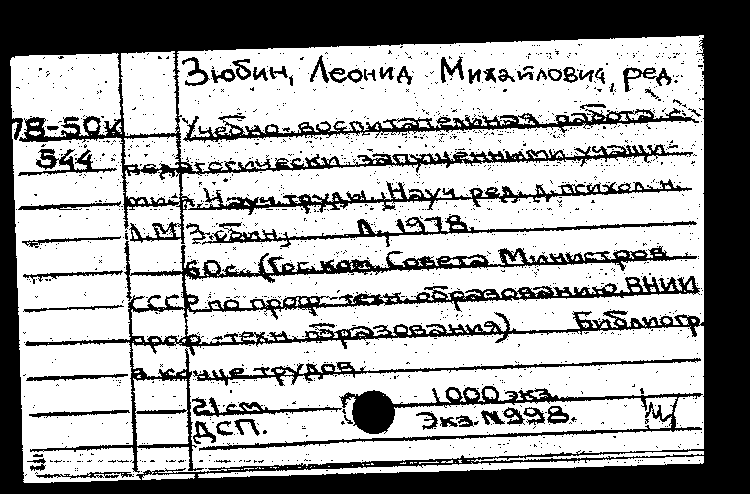 Зюбин, Леонид Михайлович, ред.
78-50к Учебно-воспитательная работа с
544 педагогически запущенными учащи-
мися. Науч. труды. [Науч. ред. д. психол. н.
Л.М. Зюбин]. Л., 1978.
60 с. (Гос. ком. Совета Министров
СССР по проф.-техн. образованию, ВНИИ
проф.-техн. образования) Библиогр.
в конце трудов.
21 см. 1000 экз.
ДСП. Экз. №998.